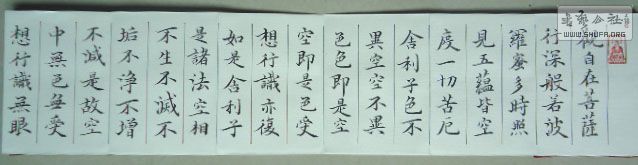 觀自在菩薩
行深般若波
羅蜜多時照
見五蘊皆空
度一切苦厄
舍利子色不
異空空不異
色色即是空
空即是色受
想行識亦復
如是舍利子
是諸法空相
不生不滅不
垢不淨不增
不減是故空
中無色無受
想行識無眼
WWW.SHUFA.ORG